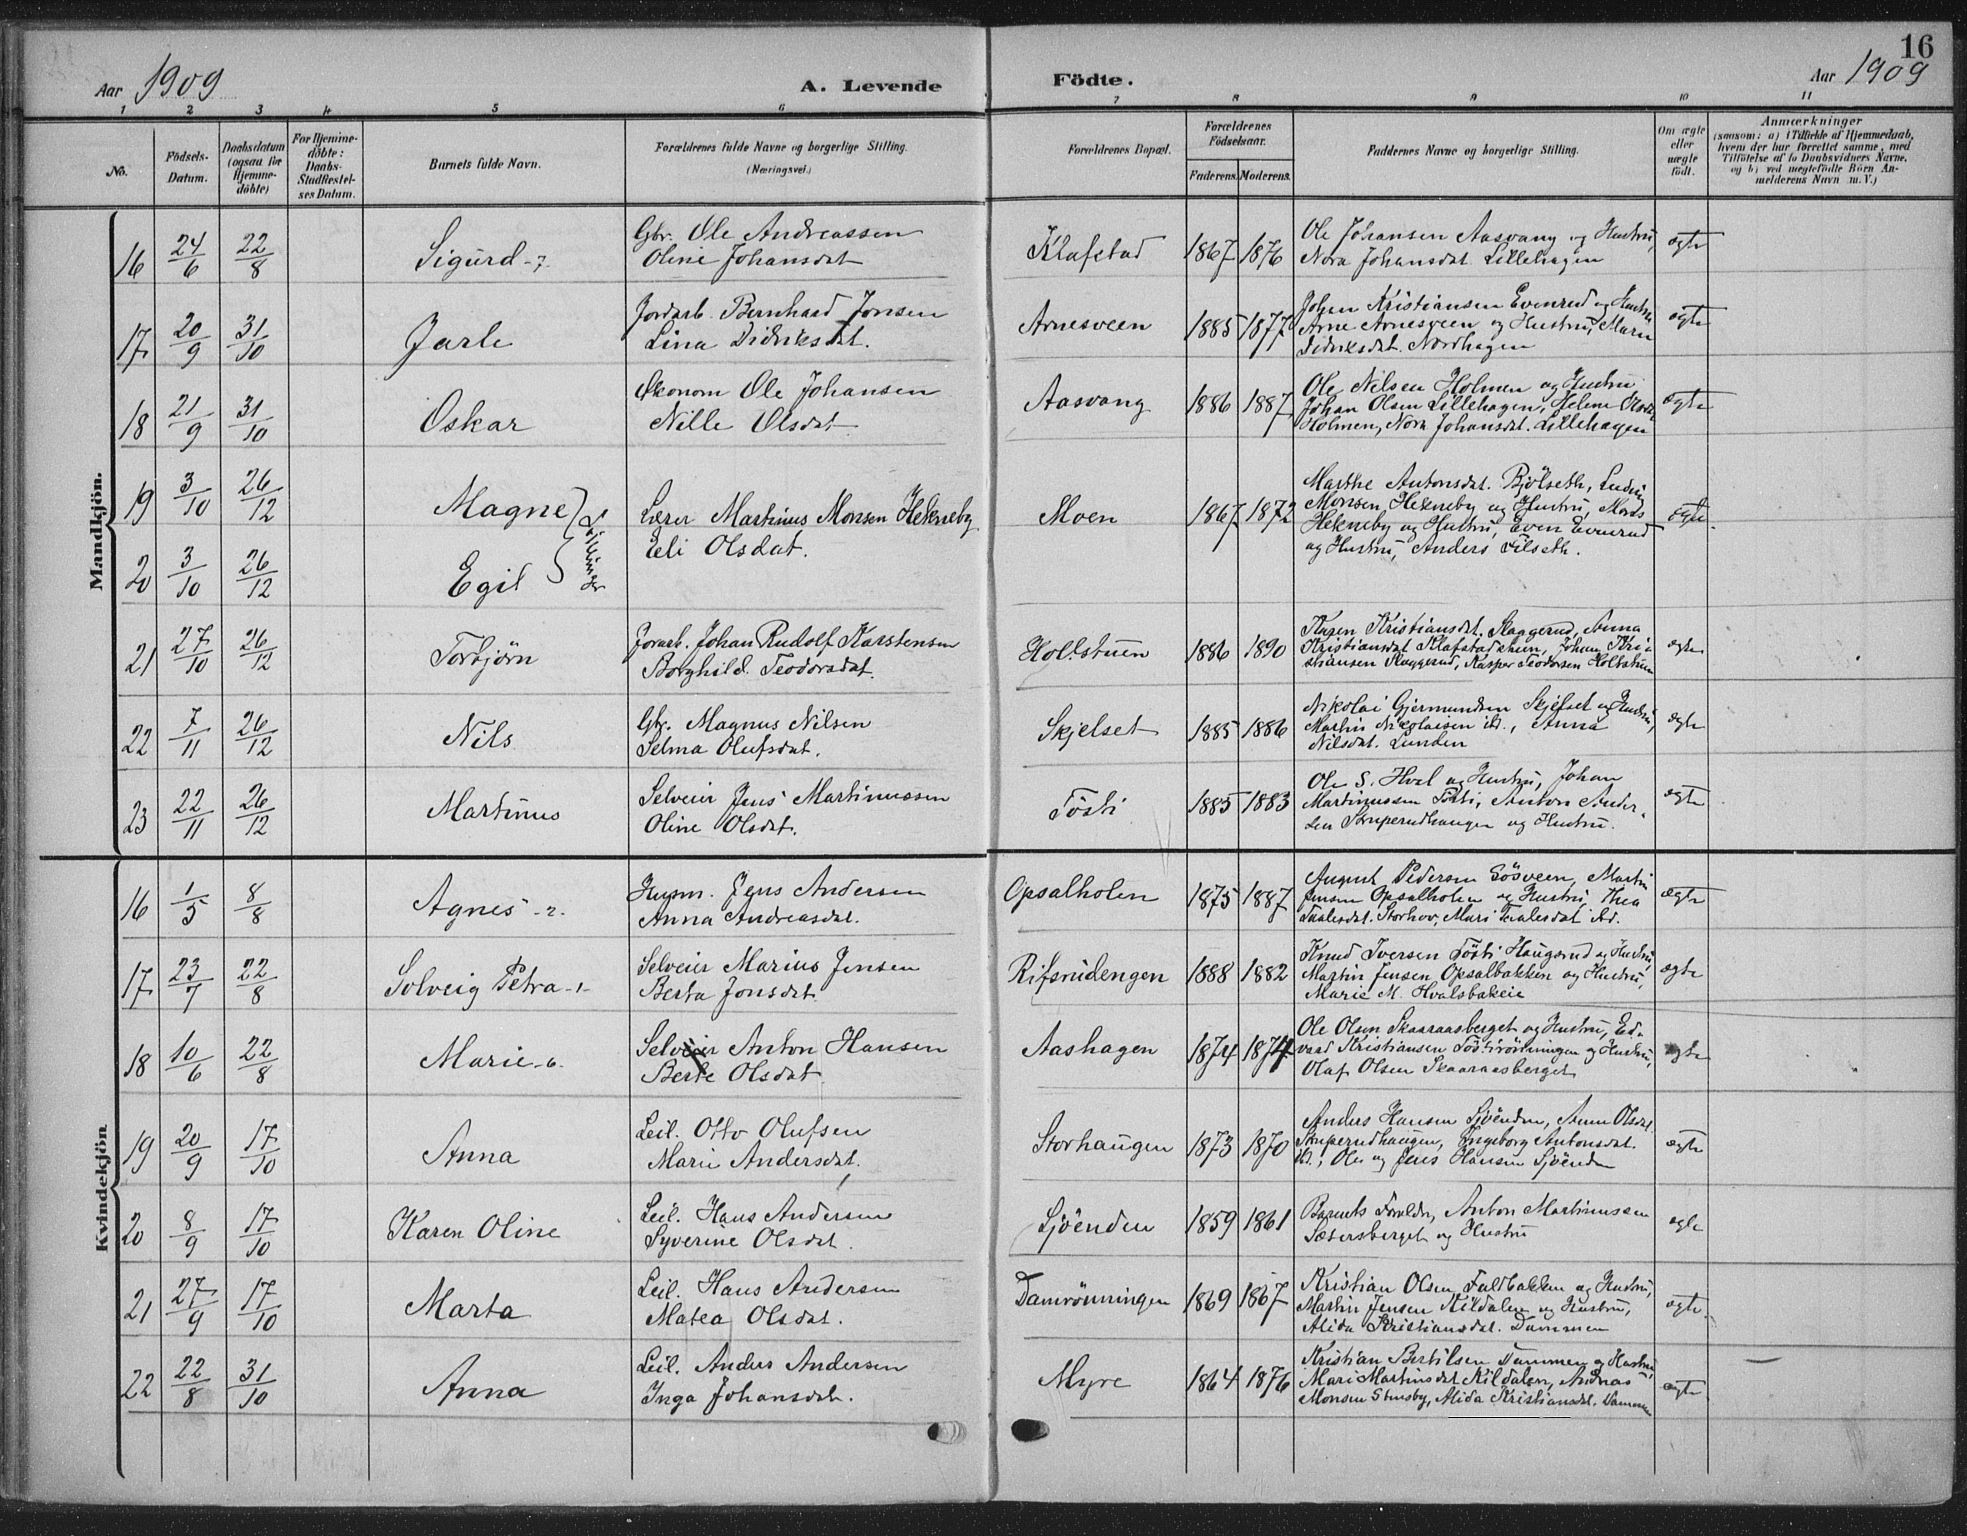 16
Aar 1909 A. Levende Födte. Aar 1909
1 2 3 4 5 6 7 8 9 10 11
No.
Födsels-Datum.
Daabsdatum (ogsaa for Hjemme-döbte)
For Hjemme-döbte: Daabs-Stadfæstel-ses Datum.
Barnets fulde Navn.
Forældrenes fulde Navne og borgerlige Stilling. (Næringsvei.)
Forældrenes Bopæl.
Forældrenes Födselsaar.
Faderens. Moderens.
Faddernes Navne og borgerlige Stilling.
Om ægte eller uægte födt.
Anmærkninger
(saasom: a) i Tilfælde af Hjemmedaab,
hvem der har forrettet samme, med
Tilföielse af to Daabsvidners Navne,
og b) ved uægtefödte Börn An-
melderens Navn m. V.)
Mandkjön.
16 24/6 22/8 Sigurd -7- Gbr. Ole Andreassen
Oline Johansdat Klafstad 1867 1876 Ole Johansen Aasvang og Hustru,
Nora Johansdat. Lillehagen ægte
17 20/9 31/10 Jarle Jordarb. Bernhard Jonsen
Lina Didriksdat. Arnesveen 1885 1877 Johan Kristiansen Evenrud og Hustru
Arne Arnesveen og Hustru, Marie
Didriksdat. Nordhagen ægte
18 21/9 31/10 Oskar Økonom Ole Johansen
Nille Olsdat Aasvang 1886 1887 Ole Nilsen Holmen og Hustru
Johan Olsen Lillehagen, Helene Olsdat
Holmen, Nora Johansdat. Lillehagen ægte
19 3/10 26/12 Magne Tvillinger Lærer Martinus Monsen Hekneby
Eli Olsdat. Moen 1867 1872 Marthe Antonsdat. Bjölseth, Ludvig
Monsen Hekneby og Hustru, Mons
Hekneby og Hustru, Even Evenrud
og Hustru, Anders Filseth. ægte
20 3/10 26/12 Egil
21 27/10 26/12 Torbjörn Jorarb. Johan Rudolf Karstensen
Borghild Teodorsdat. Holtstuen 1886 1890 Karen Kristiansdat. Slaggerud, Anna
Kristiansdat Klafstadeken, Johan Kri-
stiansen Slaggerud, Kasper Teodorsen Holtstuen ægte
22 7/11 26/12 Nils Gbr. Magnus Nilsen
Selma Olufsdat. Skjelset 1885 1886 Nikolai Gjermundsen Skjelset og Hustru,
Martin Nikolaisen ibd., Anna
Nilsdat. Lunden ægte
23 22/11 26/12 Martinus Selveier Jens Martinussen
Oline Olsdat. Tösti 1885 1883 Ole S. Hval og Hustru, Johan
Martinussen Tösti, Anton Ander-
sen Struperudhaugen og Hustru. ægte
Kvindekjön
16 1/5 8/8 Agnes -2- Husm. Jens Andersen
Anna Andreasdat. Opsalholen 1875 1887 August Pedersen Sösveen, Martin
Jensen Opsalholen og Hustru, Thea
Taalesdat. Storhov, Mari Taalesdat ibd. ægte
17 23/7 22/8 Solveig Petra -1- Selveier Marius Jensen
Berta Jonsdat Rifsrudengen 1888 1882 Knud Iversen Tösti Haugerud og Hustru,
Martin Jensen Opsalbakken og Hustru,
Marie M. Hvalsbakeie ægte
18 10/6 22/8 Marie -6- Selveier Anton Hansen
Berte Olsdat Aashagen 1874 1874 Ole Olsen Skaaraasberget og Hustru, Ed-
vard Kristiansen Töstirönningen og Hustru,
Olaf Olsen Skaaraasberget ægte
19 20/9 17/10 Anna Leil. Otto Olufsen
Marie Andersdat. Storhaugen 1873 1870 Anders Hansen Sjöenden, Anne Olsdat
Struperudhaugen, Ingeborg Antonsdat.
ibd., Ole og Jens Hansen Sjöenden ægte
20 8/9 17/10 Karen Oline Leil. Hans Andersen
Syverine Olsdat. Sjöenden 1859 1861 Barnets Foreldre, Anton Martinussen
Sætersberget og Hustru ægte
21 27/9 17/10 Marta Leil. Hans Andersen
Matea Olsdat. Damrönningen 1869 1867 Kristian Olsen Faldbakken og Hustru,
Martin Jensen Kildalen og Hustru,
Alida Kristiansdat. Dammen ægte
22 22/8 31/10 Anna Leil. Anders Andersen
Inga Johansdat. Myre 1864 1876 Kristian Bertilsen Dammen og Hustru,
Mari Martinsdat Kildalen, Andreas
Monsen Stensby, Alida Kristiansdat. Dammen ægte